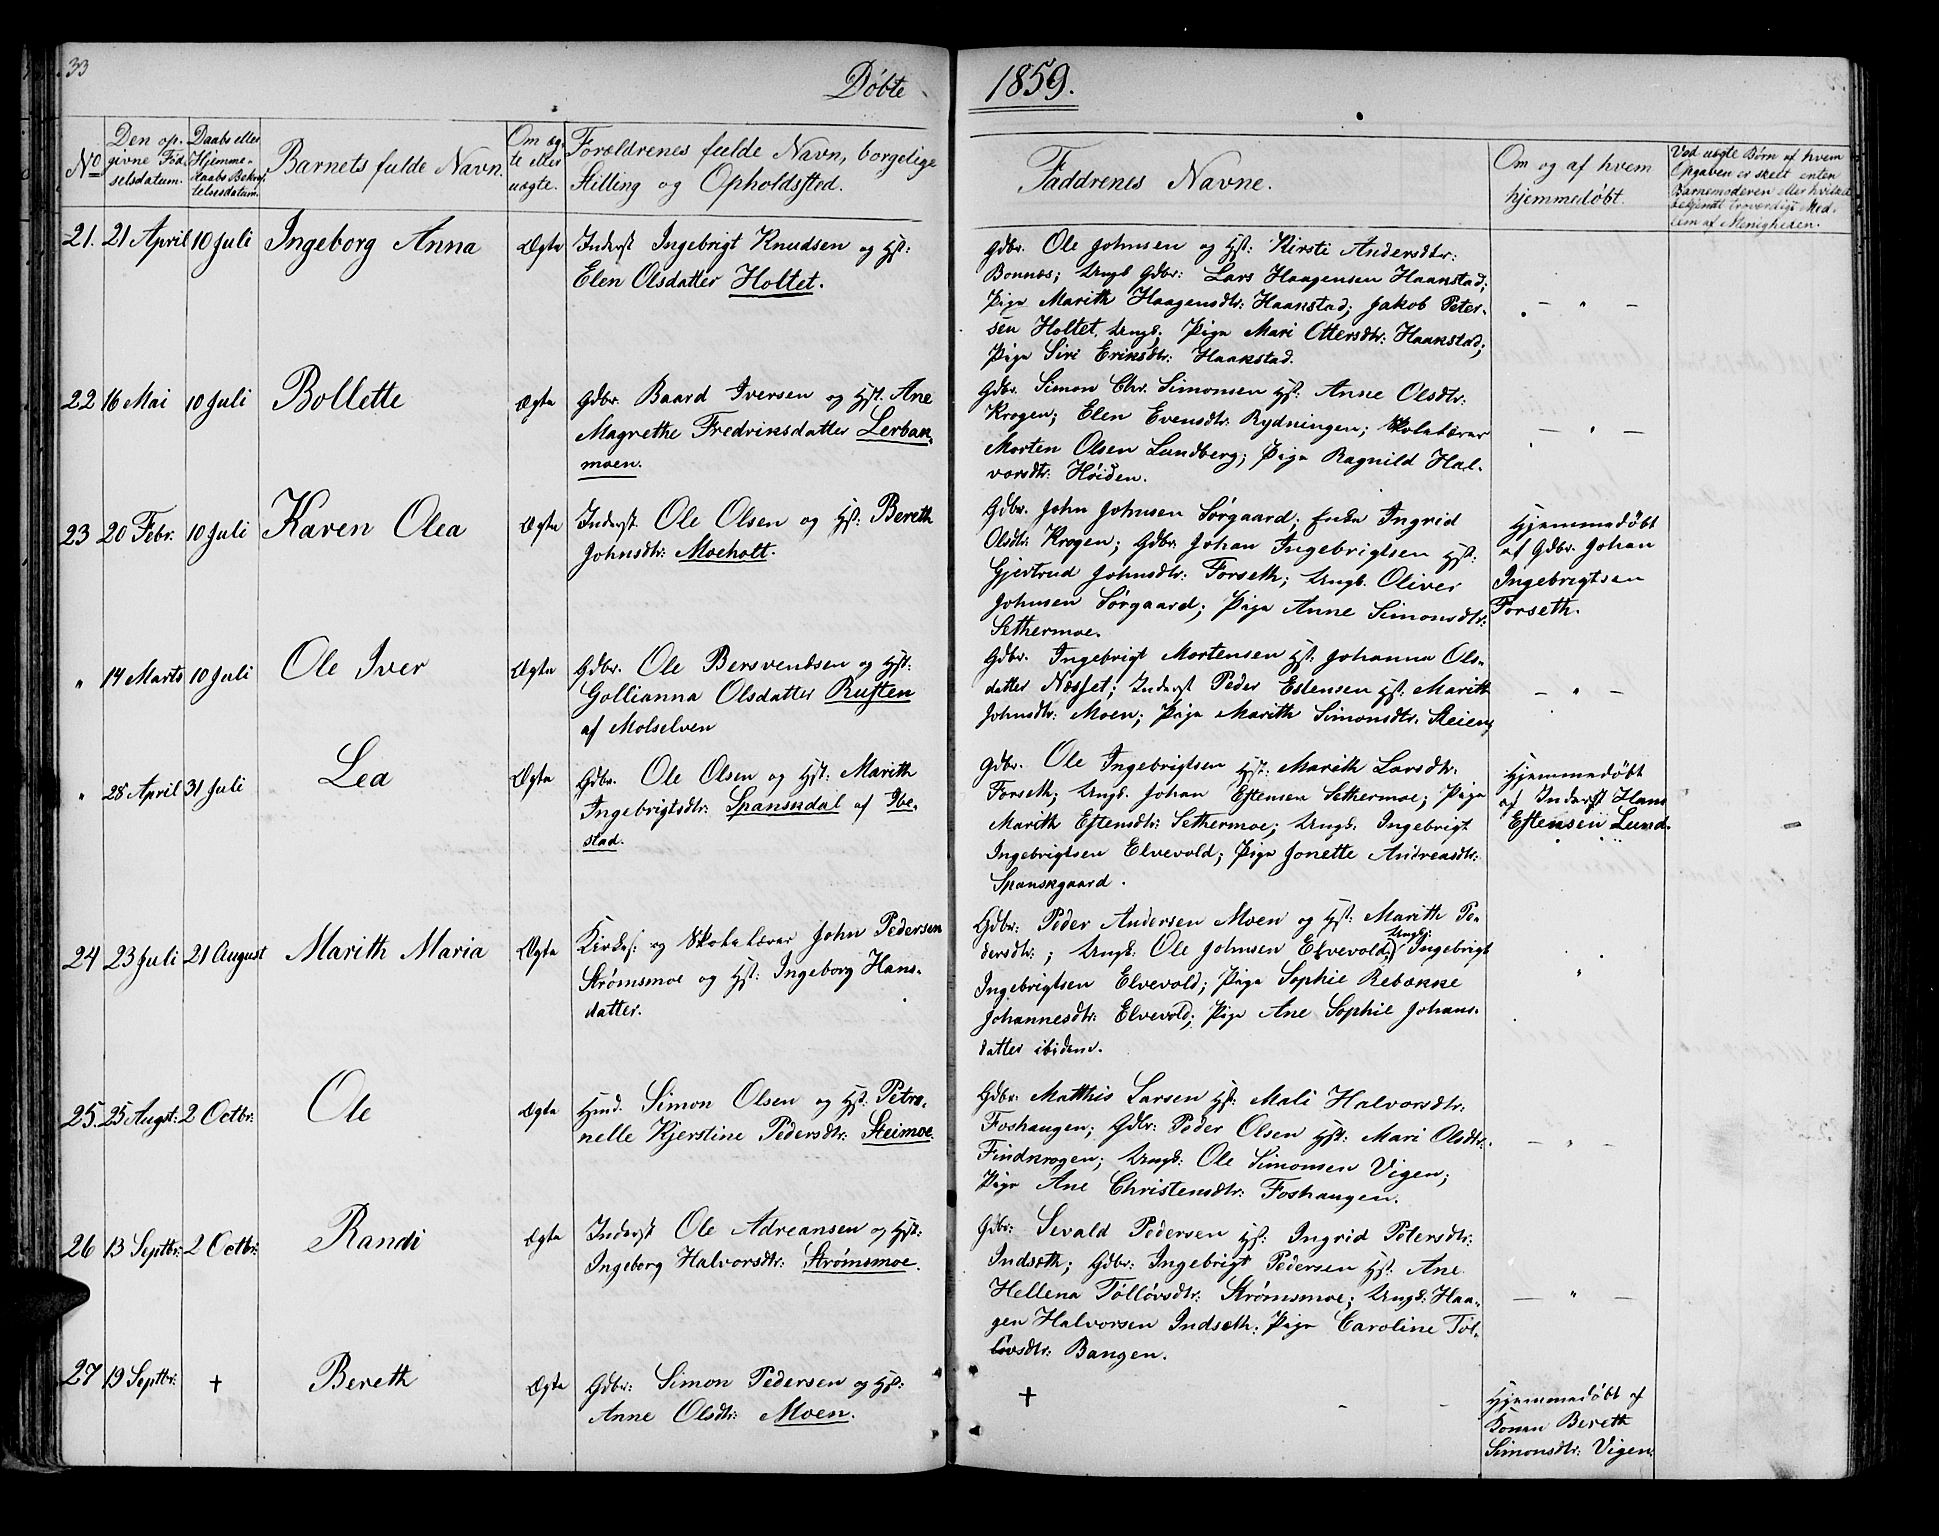 33
Døbte
1859.
No
Den op-
givne Fød-
selsdatum.
Daabs eller
Hjemme-
daabs Bekræf-
telsesdatum.
Barnets fulde Navn.
Om æg-
te eller
uægte.
Forældrenes fulde Navn, borgelige
Stilling og Opholdssted.
Faddrenes Navne.
Om og af hvem
hjemmedøbt.
Ved uægte Børn af hvem
Opgaven er skeet enten
Barnemoderen eller hvilket
bekjendt troværdigt Med-
lem af Menigheden.
21. 21 April 10 Juli Ingeborg Anna Ægte
Inderst Ingebrigt Knudsen og Hst:
Elen Olsdatter Holtet.
Gdbr. Ole Johnsen og Hst: Kirsti Andersdtr:
Bonnæs; Ungk Gdbr: Lars Haagensen Haanstad;
Pige Marith Haagensdtr: Haanstad; Jakob Peter-
sen Holtet, Ungk; Pige Mari Ottersdtr: Haakstad;
Pige Siri Eriksdtr: Haakstad.
— " —
22 16 Mai 10 Juli Bollette Ægte
Gdbr. Baard Iversen og Hst. Ane
Magrethe Fredriksdatter Lerbak-
moen.
Gdbr. Simon Chr. Simonsen Hst: Anne Olsdtr:
Krogen; Elen Evensdtr: Rydningen; Skolelærer
Morten Olsen Lundberg; Pige Ragnild Hal-
vorsdtr: Høiden.
— " —
23 20 Febr. 10 Juli Karen Olea Ægte
Inderst Ole Olsen og Hst: Bereth
Johnsdtr: Moeholt.
Gdbr. John Johnsen Sørgaard; Enke Ingrid
Olsdtr: Krogen; Gdbr. Johan Ingebrigtsen Hst:
Gjertrud Johnsdtr: Forseth; Ungk. Oliver
Johnsen Sørgaard; Pige Anne Simonsdtr:
Sethermoe.
Hjemmedøbt
af Gdbr. Johan
Ingebrigtsen
Forseth.
" 14 Marts 10 Juli Ole Iver Ægte
Gdbr. Ole Bersvendsen og Hst:
Gollianna Olsdatter Rusten
af Molselven
Gdbr. Ingebrigt Mortensen Hst: Johanna Ols-
datter Næsset; Inderst Peder Estensen Hst: Marith
Johnsdtr: Moen; Pige Marith Simonsdtr. Steien;
— " —
" 28 April 31 Juli Lea Ægte
Gdbr. Ole Olsen og Hst: Marith
Ingebrigtsdtr: Spansdal af Ibe-
stad.
Gdbr. Ole Ingebrigtsen Hst: Marith Larsdtr.
Forseth; Ungk. Johan Estensen Sethermoe; Pige
Marith Estensdtr: Sethermoe; Ungk. Ingebrigt
Ingebrigtsen Elvevold; Pige Jonette Andreasdtr:
Spansgaard.
Hjemmedøbt
af Inderst Hans
Estensen Lund.
24 23 Juli 21 August Marith Maria Ægte
Kirkes: og Skolelærer John Pedersen
Strømsmoe og Hst: Ingeborg Hans-
datter.
Gdbr: Peder Andersen Moen og Hst: Marith Pe-
dersdtr: ; Ungk: Ole Johnsen Elvevold; Ungk: Ingebrigt
Ingebrigtsen Elvevold; Pige Sophie Rebekke
Johannesdtr: Elvevold; Pige Ane Sophie Johans-
datter ibidem.
"
25. 25 Augst: 2 Octbr: Ole Ægte
Hmd. Simon Olsen og Hst: Petro-
nelle Kjerstine Pedersdtr: Steimoe.
Gdbr. Matthis Larsen Hst: Mali Halvorsdtr:
Foshaugen; Gdbr: Peder Olsen Hst: Mari Olsdtr:
Findkrogen; Ungk: Ole Simonsen Vigen;
Pige Ane Christensdtr: Foshaugen.
— " —
26 13 Septbr: 2 Octbr: Randi Ægte
Inderst Ole Adreansen og Hst:
Ingeborg Halvorsdtr: Strømsmoe.
Gdbr: Sivald Pedersen Hst: Ingrid Petersdtr:
Indseth; Gdbr: Ingebrigt Pedersen Hst: Ane
Hellena Tølløvsdtr: Strømsmoe; Ungk: Haa-
gen Halvorsen Indseth; Pige Caroline Tøl-
løvsdtr: Bangen.
— " —
27 19 Septbr: † Bereth Ægte
Gdbr: Simon Pedersen og Hst:
Anne Olsdtr: Moen.
†
Hjemmedøbt af
Konen Bereth
Simonsdtr: Vigen.